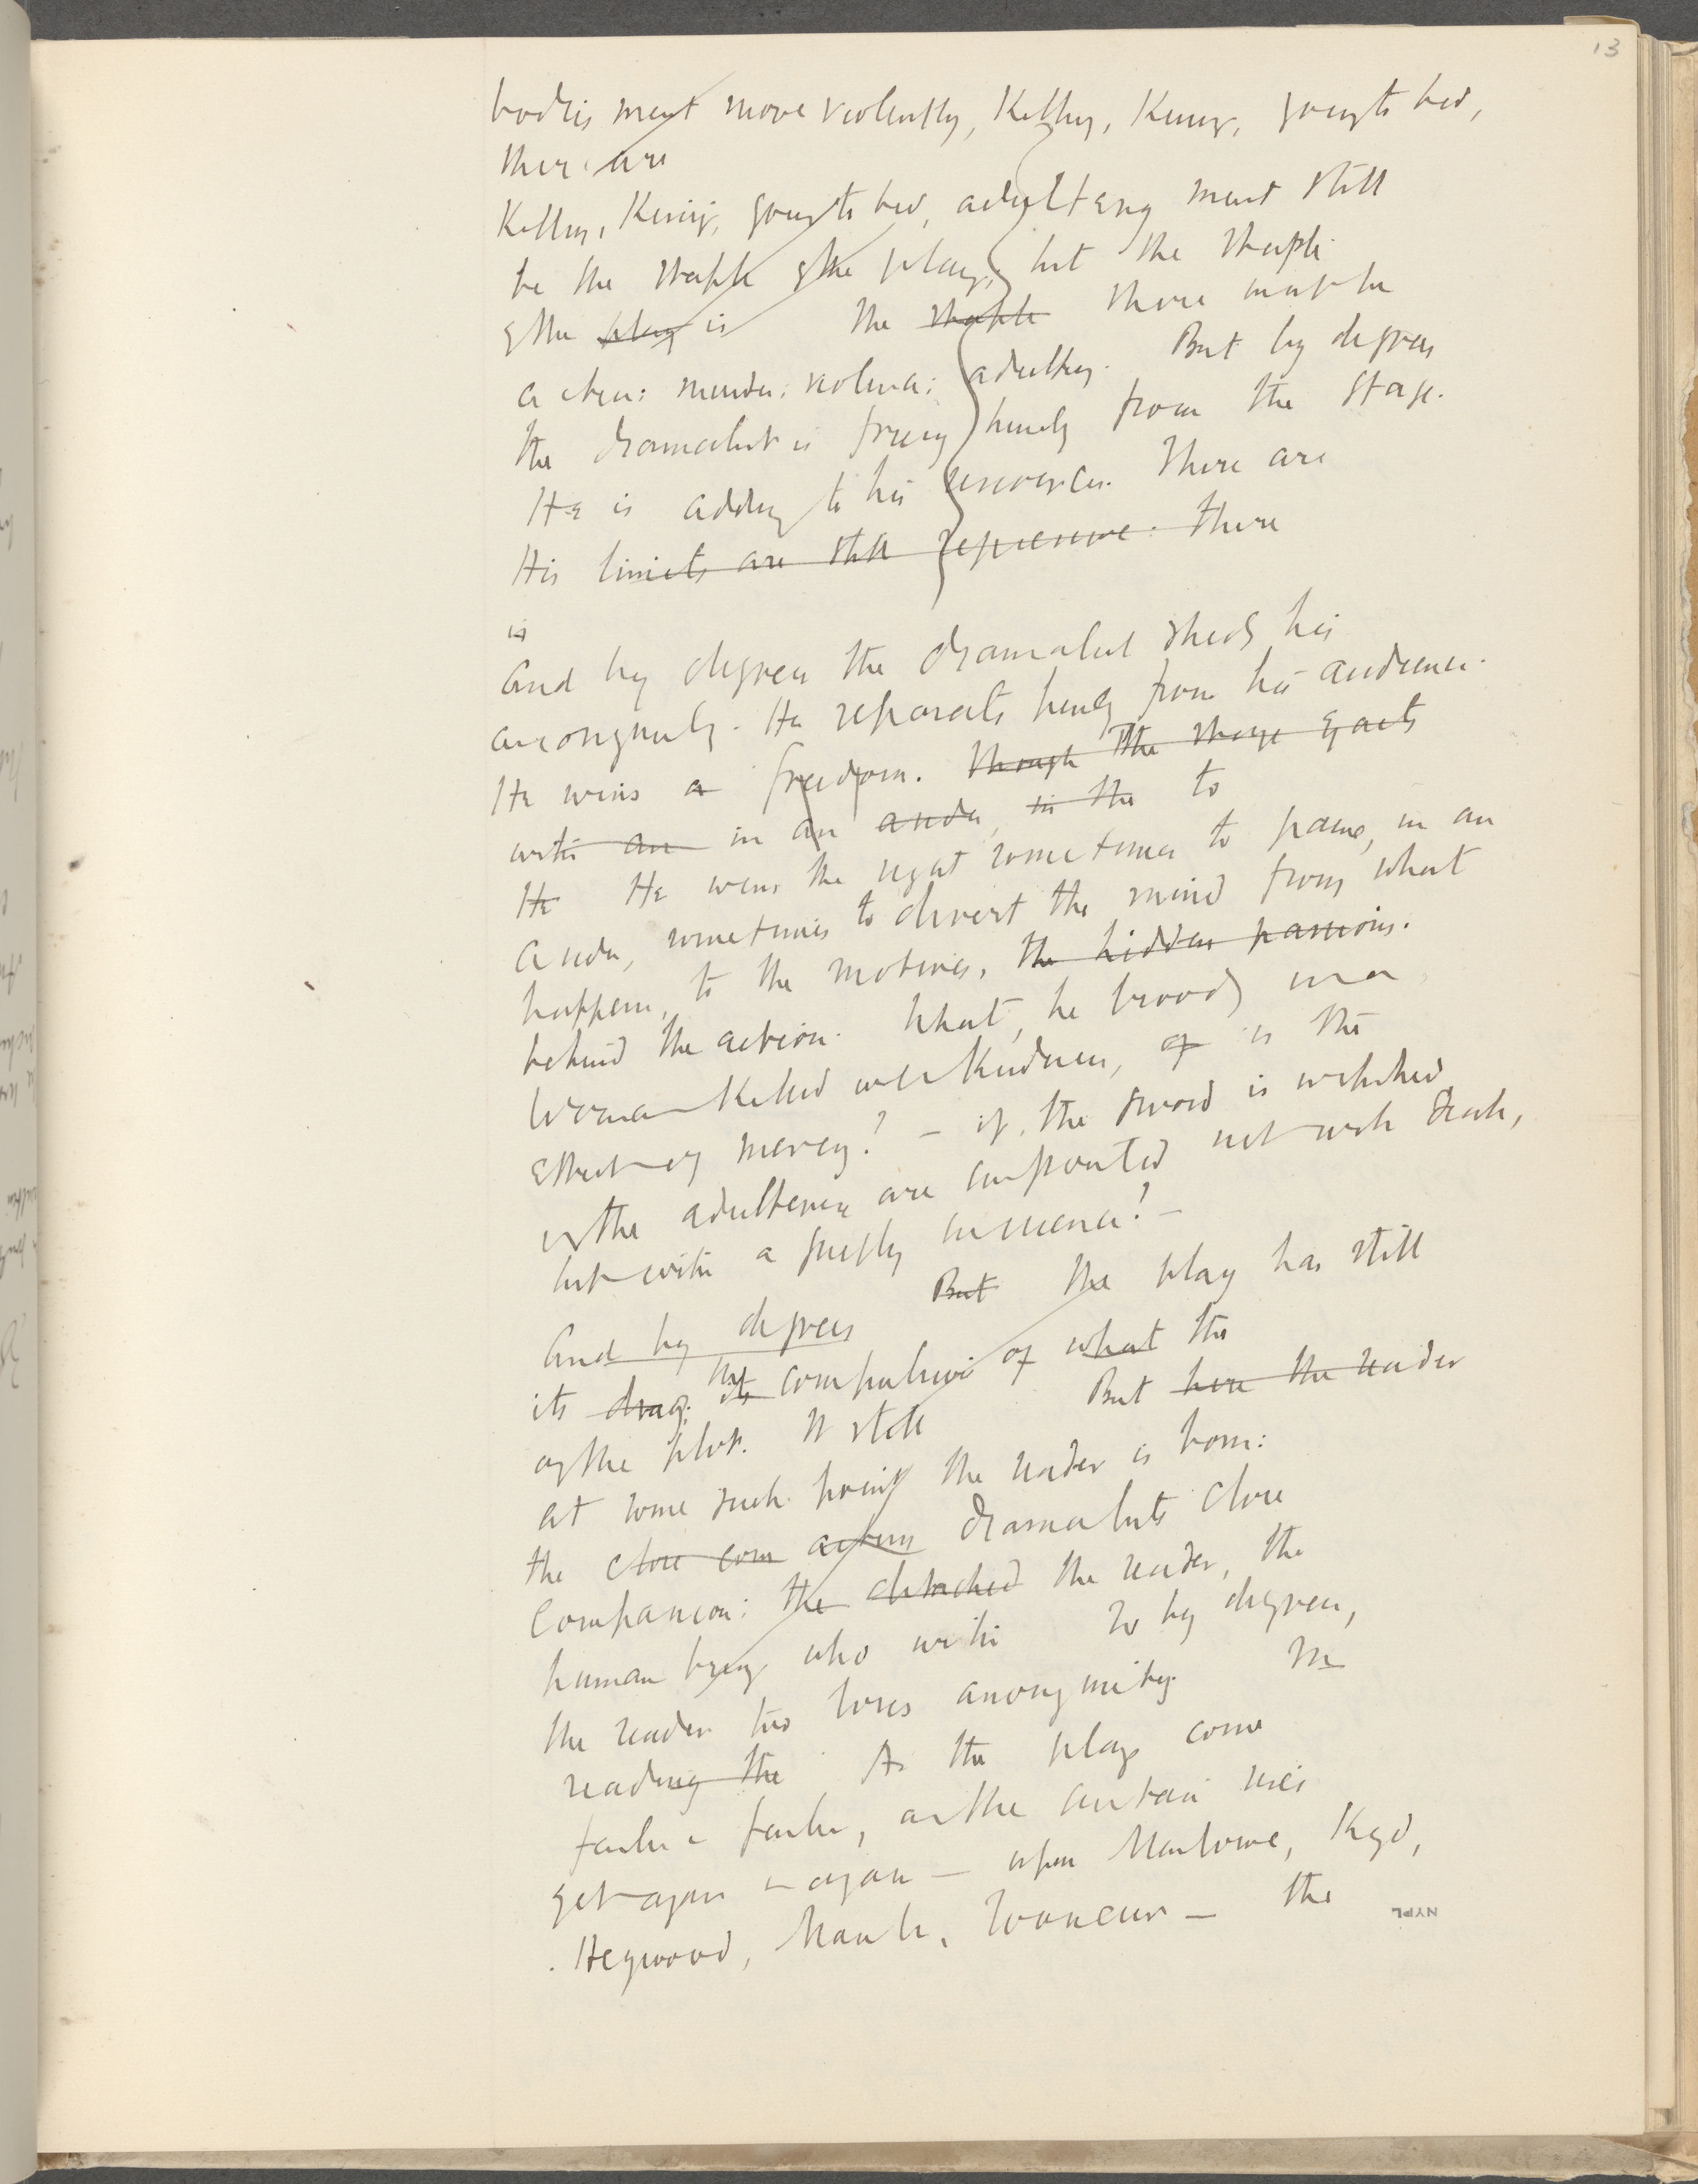 13
bodies must move violently, Killing, Kissing, going to bed,
there are
Killing, Kissing, going to bed, adultery must still
be the staple of the play, but the staple
of the play is the staple there must be
action: murder: violence: adultery. But by degrees
the dramatist is freeing himself from the stage.
He is adding to his resources. There are
His limits are still repressive. there
is
And by degrees the dramatist sheds his
anonymity. He separates himself from his audience.
He wins a freedom. though the the stage exacts
with an in an aside, in the to
He He wins the right sometimes to pause, in an
aside, sometimes to divert the mind from what
happens, to the motives, the hidden passions.
behind the action. What, he broods in a
Woman Killed with Kindness, of is the
effect of mercy? - if the sword is withheld
if the adulterers are confronted not with death,
but with a
And by degrees But the play has still
its drag: its the compulsion of what the
of the plot. It still But here the reader
at some such point the reader is born:
the close com actions dramatists close
companion: the detached the reader, the
human being who with So by degrees,
the reader too loses anonymity. In
reading the As the plays come
faster & faster, as the curtain rises
yet again & again - upon Marlowe, Kyd,
Heywood, Tourneur - the
NYPL